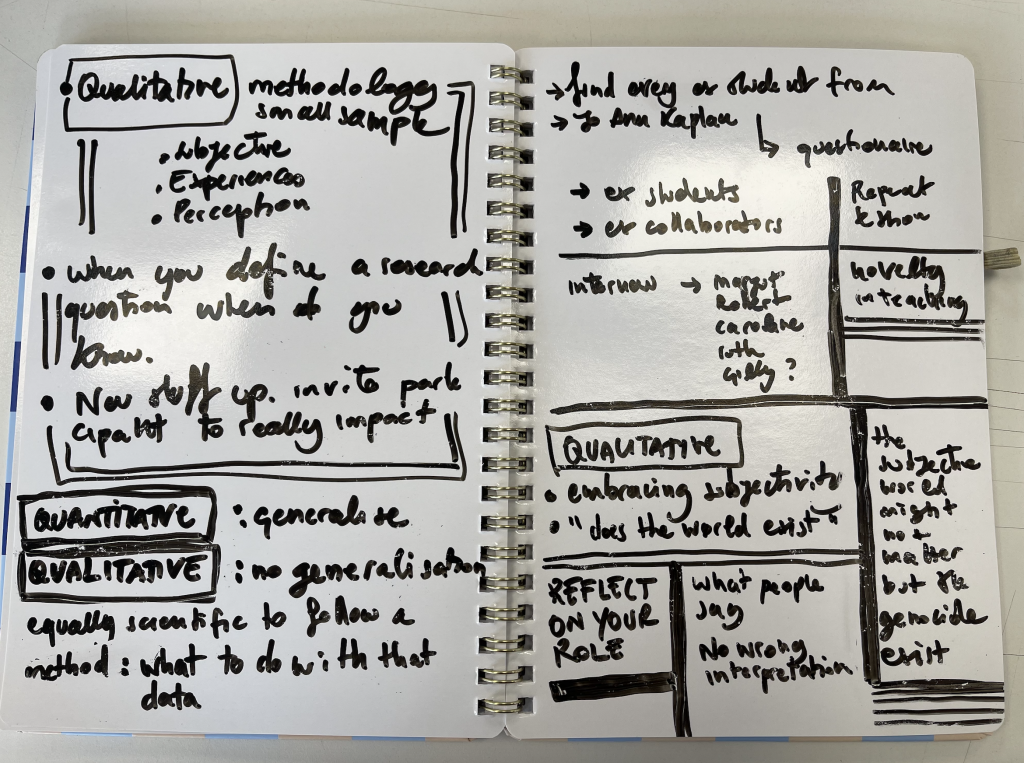 • Qualitative methodology
small sample
• Subjective
• Experiences
• Perception
• when you define a research
question when do you
know.
• Now stuff up. invite parti
cipant to really impact
QUANTITATIVE : generalise
QUALITATIVE : no generalisation
equally scientific to follow a
method : what to do with that
data
→ find or student from
→ Jo Ann Kaplan
↳ questionaire
→ ex students
→ ex collaborators
Repeat
& show
interview → margut
Robert
caroline
ruth
Gilly ?
novelty
in teaching
QUALITATIVE
• embracing subjectivity
• "does the world exist"
the
subjective
world
might
not
matter
but the
genocide
exist
REFLECT
ON YOUR
ROLE
what people
say
No wrong
interpretation